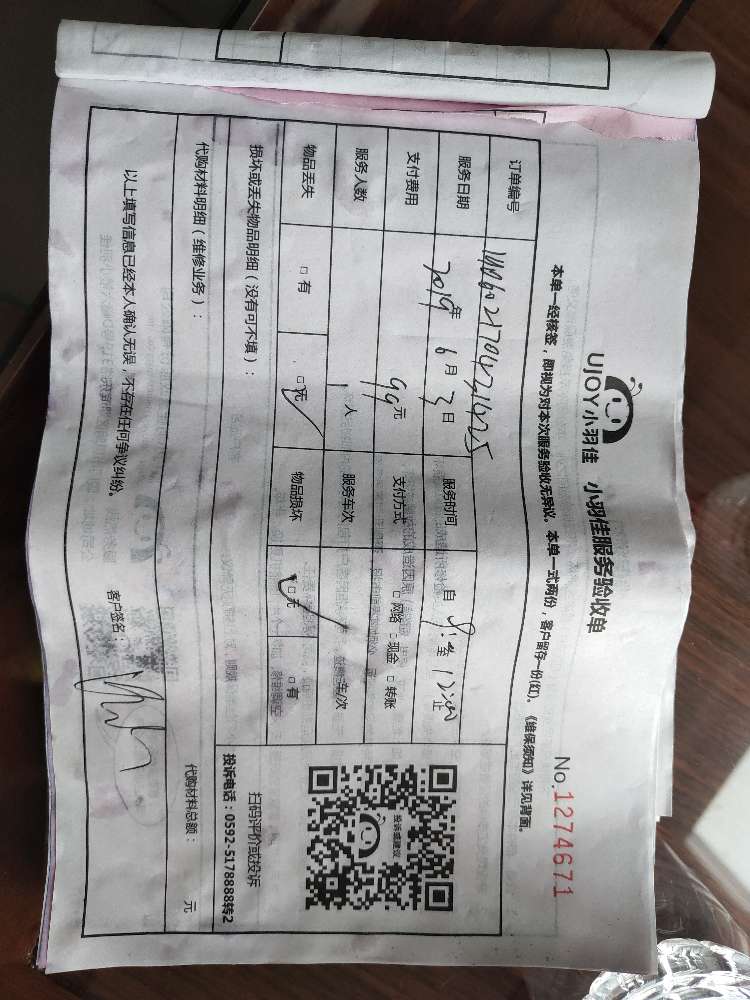 UJOY小羽佳 小羽佳服务验收单
No.1274671
本单一经核签，即视为对本次服务验收无异议。本单一式两份，客户留存一份(红)。《维保须知》详见背面。
订单编号
服务日期 2019年 6月 3日 服务时间 自 8: 至 12:00 止
支付费用 99元 支付方式 □ 网络 □ 现金 □ 转账
服务人数 1 人 服务车次 车/次
物品丢失 □ 有 □ 无 物品损坏 □ 无 □ 有
投诉或建议
扫码评价或投诉
投诉电话：0592-5178888转2
损坏或丢失物品明细（没有可不填）：
代购材料明细（维修业务）：
代购材料总额： 元
以上填写信息已经本人确认无误，不存在任何争议纠纷。
客户签名：